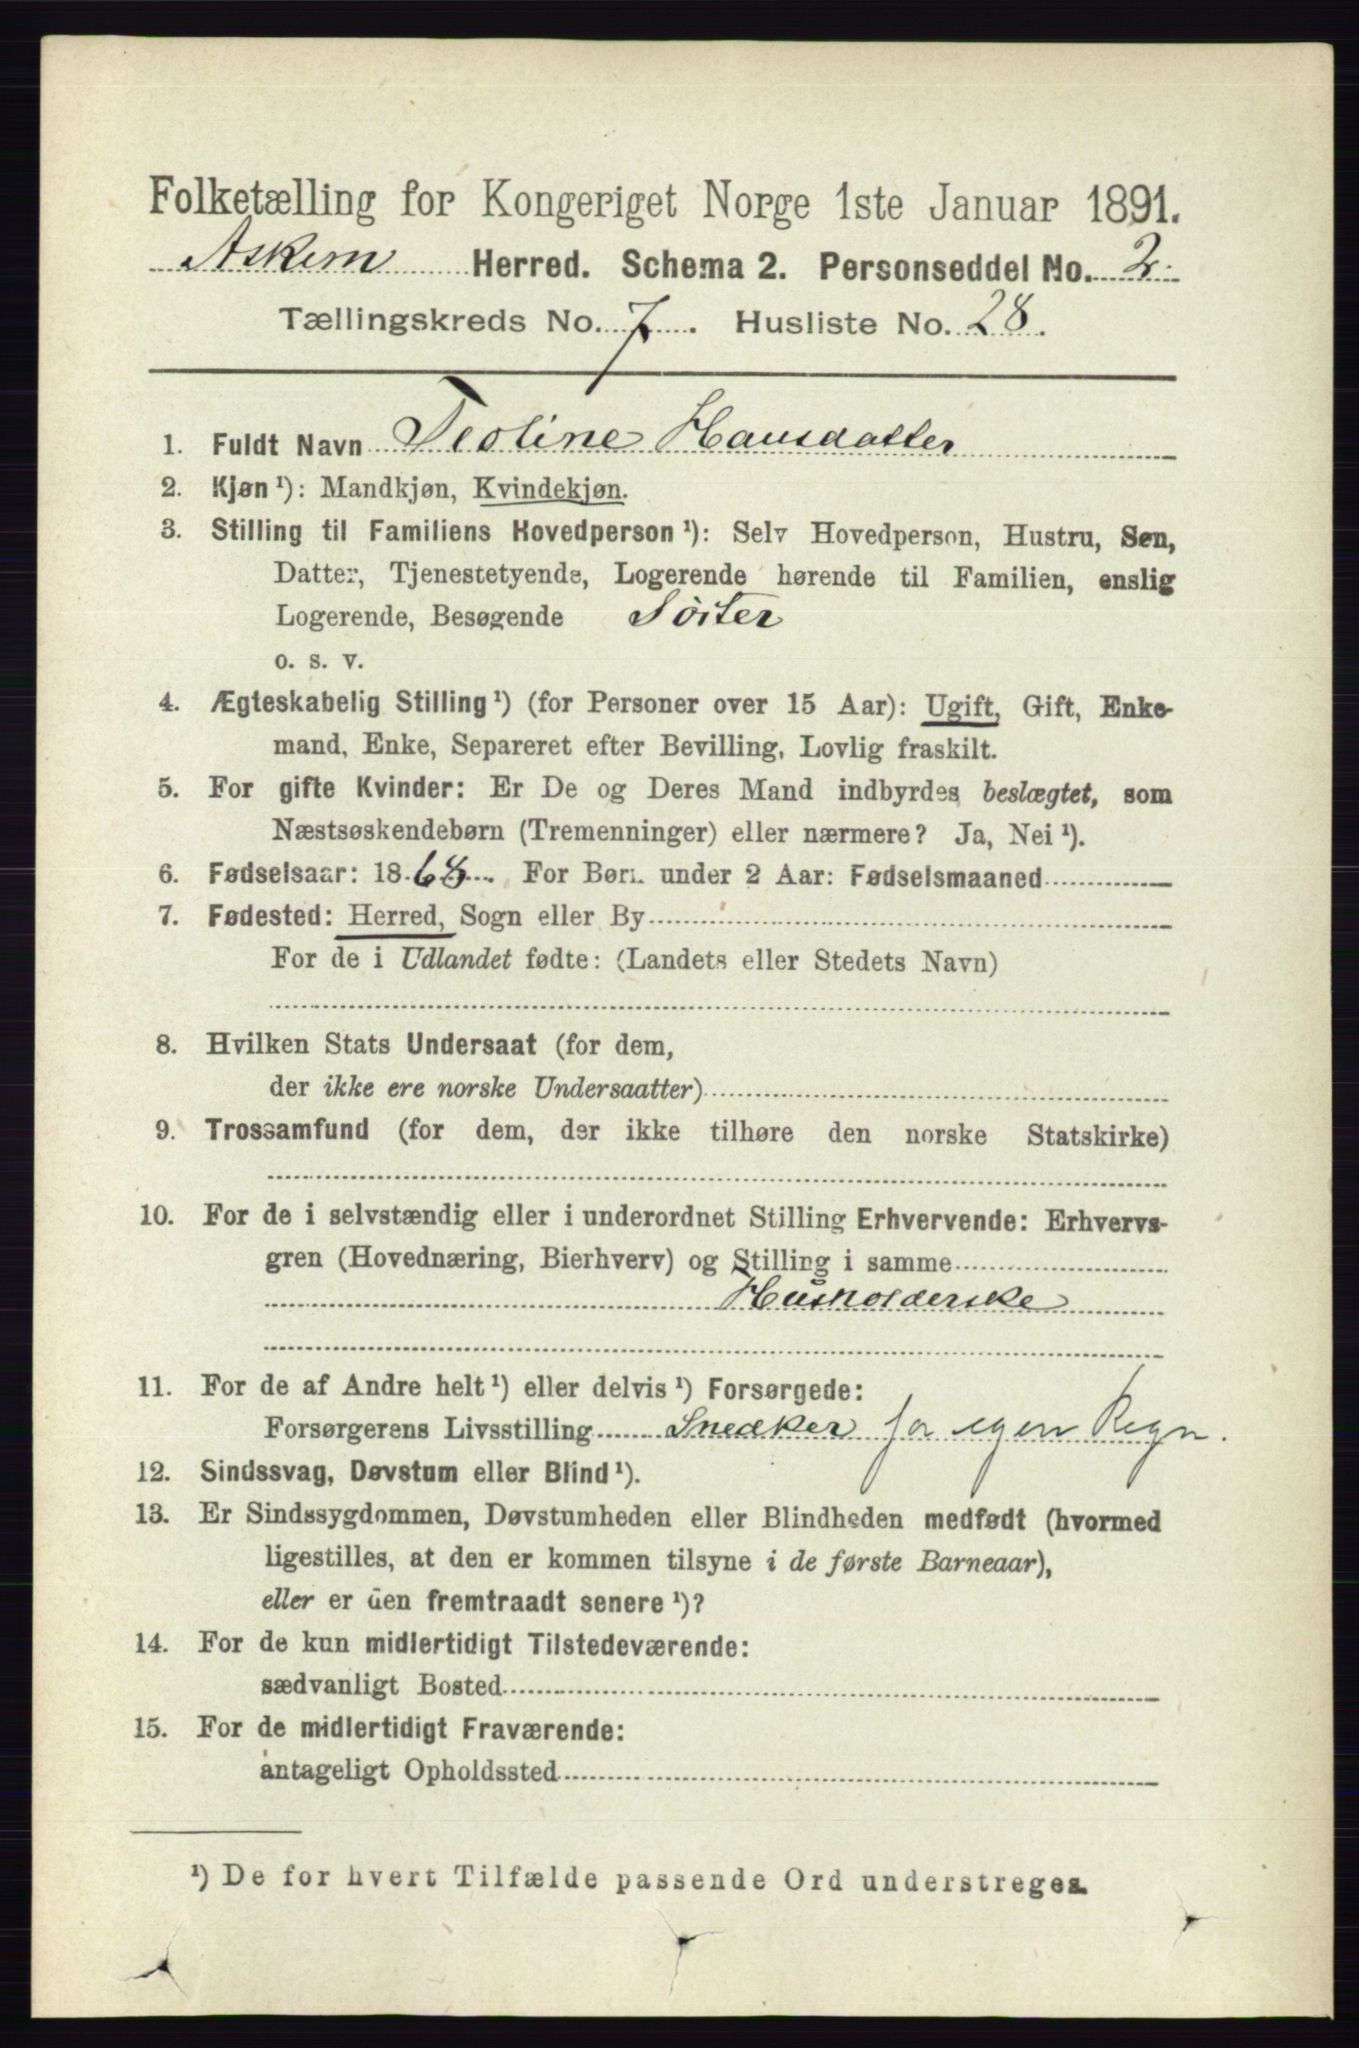 Folketælling for Kongeriget Norge 1ste Januar 1891.
Askim Herred. Schema 2. Personseddel No. 2.
Tællingskreds No. 7. Husliste No. 28.
1. Fuldt Navn Teoline Hansdatter
2. Kjøn¹): Mandkjøn, Kvindekjøn.
3. Stilling til Familiens Hovedperson¹): Selv Hovedperson, Hustru, Søn,
Datter, Tjenestetyende, Logerende hørende til Familien, enslig
Logerende, Besøgende Söster
o. s. v.
4. Ægteskabelig Stilling¹) (for Personer over 15 Aar): Ugift, Gift, Enke-
mand, Enke, Separeret efter Bevilling, Lovlig fraskilt.
5. For gifte Kvinder: Er De og Deres Mand indbyrdes beslægtet, som
Næstsøskendebørn (Tremenninger) eller nærmere? Ja, Nei¹).
6. Fødselsaar: 1868. For Børn under 2 Aar: Fødselsmaaned
7. Fødested: Herred, Sogn eller By
For de i Udlandet fødte: (Landets eller Stedets Navn)
8. Hvilken Stats Undersaat (for dem,
der ikke ere norske Undersaatter)
9. Trossamfund (for dem, der ikke tilhøre den norske Statskirke)
10. For de i selvstændig eller i underordnet Stilling Erhvervende: Erhvervs-
gren (Hovednæring, Bierhverv) og Stilling i samme
Husholderske
11. For de af Andre helt¹) eller delvis¹) Forsørgede:
Forsørgerens Livsstilling Snedker for egen Regn.
12. Sindssvag, Døvstum eller Blind¹).
13. Er Sindssygdommen, Døvstumheden eller Blindheden medfødt (hvormed
ligestilles, at den er kommen tilsyne i de første Barneaar),
eller er den fremtraadt senere¹)?
14. For de kun midlertidigt Tilstedeværende:
sædvanligt Bosted
15. For de midlertidigt Fraværende:
antageligt Opholdssted
¹) De for hvert Tilfælde passende Ord understreges.